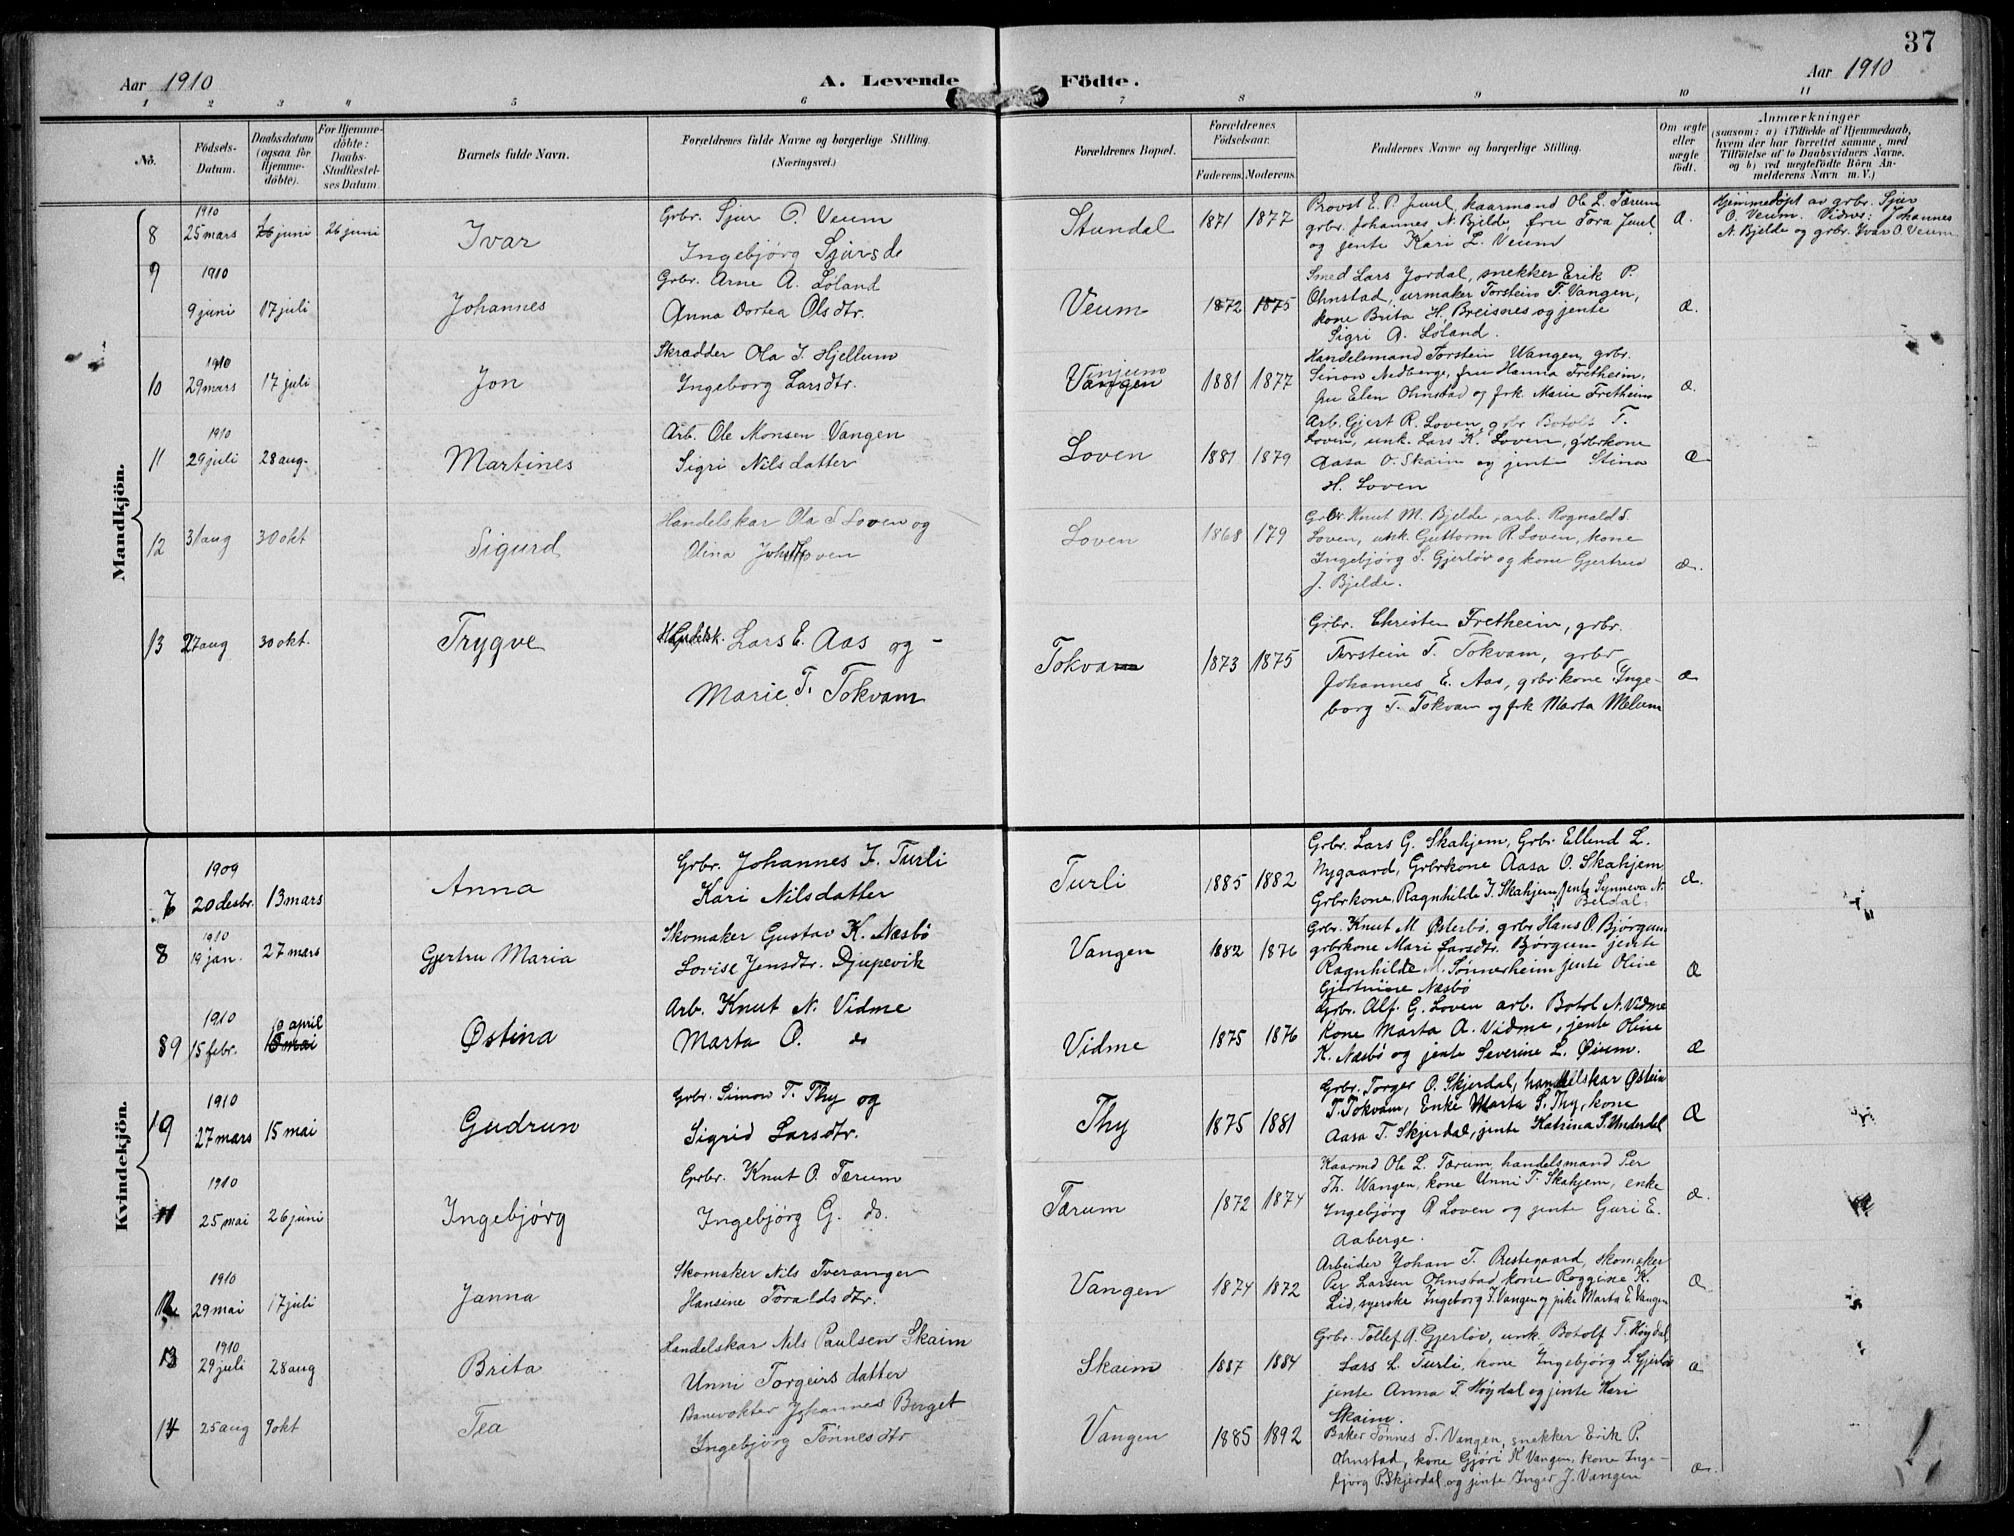 37
Aar 1910
A. Levende Födte.
Aar 1910
1 2 3 4 5 6 7 8 9 10 11
No.
Födsels-Datum.
Daabsdatum (ogsaa for Hjemmedöbte).
For Hjemmedöbte: Daabs-Stadfæstelses Datum
Barnets fulde Navn.
Forældrenes fulde Navne og borgerlige Stilling.
(Næringsvei.)
Forældrenes Bopæl.
Forældrenes Födselsaar.
Faderens. Moderens.
Faddernes Navne og borgerlige Stilling.
Om ægte eller uægte födt.
Anmærkninger
(saasom: a) i Tilfælde af Hjemmedaab, hvem der har forrettet samme, med Tilföielse af to Daabsvidners Navne, og b) ved uægtefödte Börn Anmelderens Navn m. V.)
Mandkjön.
8 1910 25 mars juni 26 juni Ivar
Grbr. Sjur O. Veum
Ingebjørg Sjursd
Stundal 1871 1877
Provst E. P. Juul, kaarmand Ole L. Tærum
grbr. Johannes N. Bjelde, fru Tora Juul
og jente Kari L. Veum
Æ.
Hjemmedøpt av grbr. Sjur
O. Veum. Vidner: Johannes
N. Bjelde og grbr. Ivar O. Veum
9 1910 9 juni 17 juli Johannes
Grbr. Arne A. Løland
Anna Dortea Olsdtr.
Veum 1872 1875
Smed Lars Jordal, snekker Erik P.
Ohnstad, urmaker Torstein T. Vangen,
kone Brita H. Breisnes og jente
Sigri A. Løland.
Æ.
10 1910 29 mars 17 juli Jon
Skrædder Ola J. Hjellum
Ingeborg Larsdtr.
Vangen 1881 1877
Handelsmand Torstein Wangen, grbr.
Simon Nedberge, fru Hanna Fretheim,
fru Elen Ohnstad og frk. Marie Fretheim
Æ.
11 1910 29 juli 28 aug. Martines
Arb. Ole Monsen Vangen
Sigri Nilsdatter
Loven 1881 1879
Arb. Gjert R. Loven, grbr Botolv T.
Loven, unk. Lars K. Loven, grbrkone
Aasa O. Skaim og jente Stina
H. Loven
Æ
12 31 aug 30 okt Sigurd
Handelskar Ola S Loven og
Olina Loven
Loven 1868 179
Grbr Knut M. Bjelde, arb. Rognald S.
Loven, unk. Guttorm R. Loven, kone
Ingebjørg S. Gjerløv og kone Gjertrud
J. Bjelde.
Æ.
13 27 aug 30 okt. Trygve
Lars E. Aas og
Marie T. Tokvam
Tokvam 1873 1875
Grbr. Christen Fretheim, grbr.
Torstein T. Tokvam, grbr
Johannes E. Aas, grbrkone Inge-
borg T. Tokvam og frk Marta Melum
Æ
Kvindekjön.
7 1909 20 desbr. 13 mars Anna
Grbr. Johannes I. Turli
Kari Nilsdatter
Turli 1885 1882
Grbr. Lars G. Skahjem, Grbr. Ellend L.
Nygaard, Grbrkone Aasa O. Skahjem
Grbrkone Ragnhilde J. Skahjem jente Synneva N.
Beidal.
Æ.
8 1910 19 jan. 27 mars Gjertru Maria
Skomaker Gustav K. Næsbø
Lovise Jensdtr. Djupevik
Vangen 1882 1876
Grbr. Knut M Østerbø, grbr Hans O. Bjørgum
grbrkone Mari Larsdtr. Bjørgum jente
Ragnhilde M. Sønnerheim jente Oline
Gjertrine Næsbø
Æ
89 1910 15 febr. 10 april 15 mai Østina
Arb. Knut N. Vidme
Marta O. do
Vidme 1875 1876
Grbr. Alf. G. Loven arb. Botol N. Vidme
kone Marta A. Vidme, jente Oline
K. Næsbø og jente Severine L. Øium.
Æ
19 1910 27 mars 15 mai Gudrun
Grbr. Simon T. Thy og
Sigrid Larsdtr.
Thy 1875 1881
Grbr. Torger O. Skjerdal, handelskar Østein
T. Tokvam, Enke Marta S. Thy, kone
Aasa T. Skjerdal, jente Katrina T. Underdal
Æ
11 1910 25 mai 26 juni Ingebjørg
Grbr. Knut O. Tærum
Ingebjørg G. do.
Tærum 1872 1874
Kaarmd Ole L. Tærum, handelsmand Per
Th. Wangen, kone Unni T. Skahjem, enke
Ingebjørg R Loven og jente Guri E.
Aaberge.
Æ.
12 1910 29 mai 17 juli Janna
Skomaker Nils Tveranger
Hansine Toraldsdtr.
Vangen 1874 1872
Arbeider Johan T. Prestegaard, skomaker
Per Larsen Ohnstad, kone Roggine K.
Lid, syerske Ingeborg J. Vangen og jente Marta E. Vangen
Æ.
13 1910 29 juli 28 aug Brita
Handelskar Nils Paulsen Skaim
Unni Torgeirsdatter
Skaim 1887 1884
Grbr. Tollef A. Gjerløv, unk. Botolf T. Høydal
Lars L. Turli, kone Ingebjørg S. Gjerløv
jente Anna T. Høydal og jente Kari
Skaim.
Æ
14 25 aug 9 okt Tea
Banevokter Johannes Berget
Ingebjørg Tønnesdtr
Vangen 1885 1892
Baker Tønnes T. Vangen, snekker Erik P.
Ohnstad, kone Gjøri K Vangen, kone Inge-
bjørg P. Skjerdal og jente Inger J. Vangen
Æ.